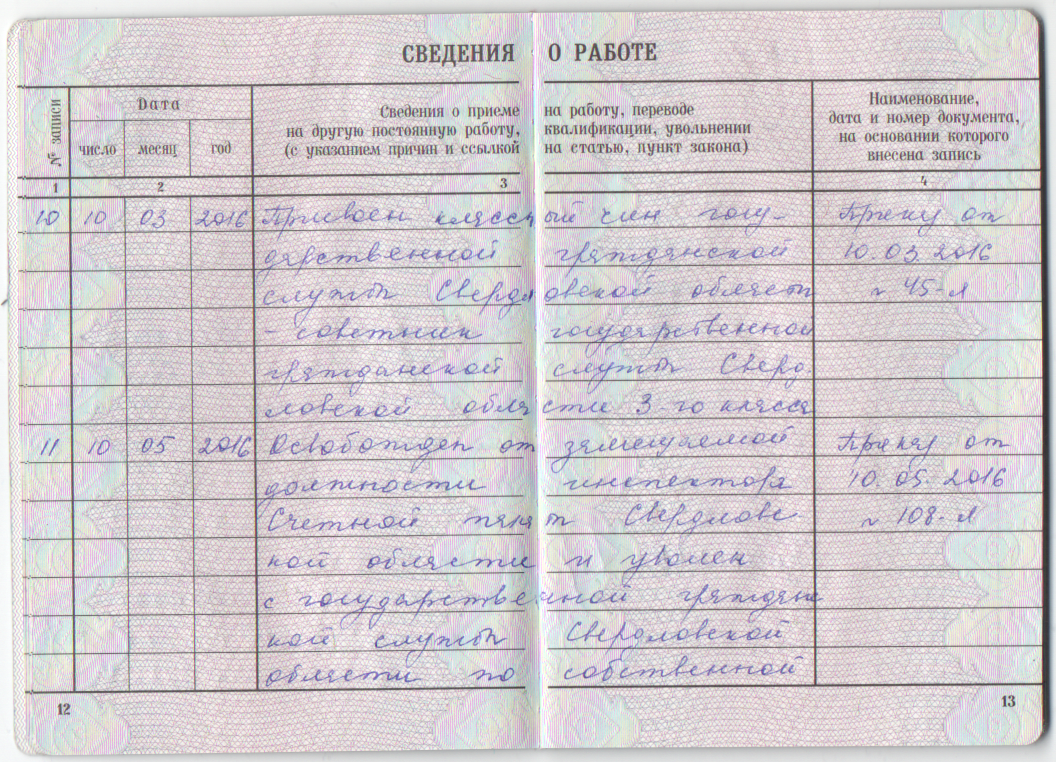 СВЕДЕНИЯ О РАБОТЕ
№ записи
Дата
число месяц год
Сведения о приеме на работу, переводе
на другую постоянную работу, квалификации, увольнении
(с указанием причин и ссылкой на статью, пункт закона)
Наименование,
дата и номер документа,
на основании которого
внесена запись
1 2 3 4
10 10 03 2016 Присвоен классный чин госу- Приказ от
дарственной гражданской 10.03.2016
службы Свердловской области № 45-л
- советник государственной
гражданской службы Сверд
ловской области 3-го класса
11 10 05 2016 Освобожден от замещаемой Приказ от
должности инспектора 10.05.2016
Счетной палат Свердловс № 108-л
кой области и уволен
с государственной гражданс
кой службы Свердловской
области по собственной
12 13